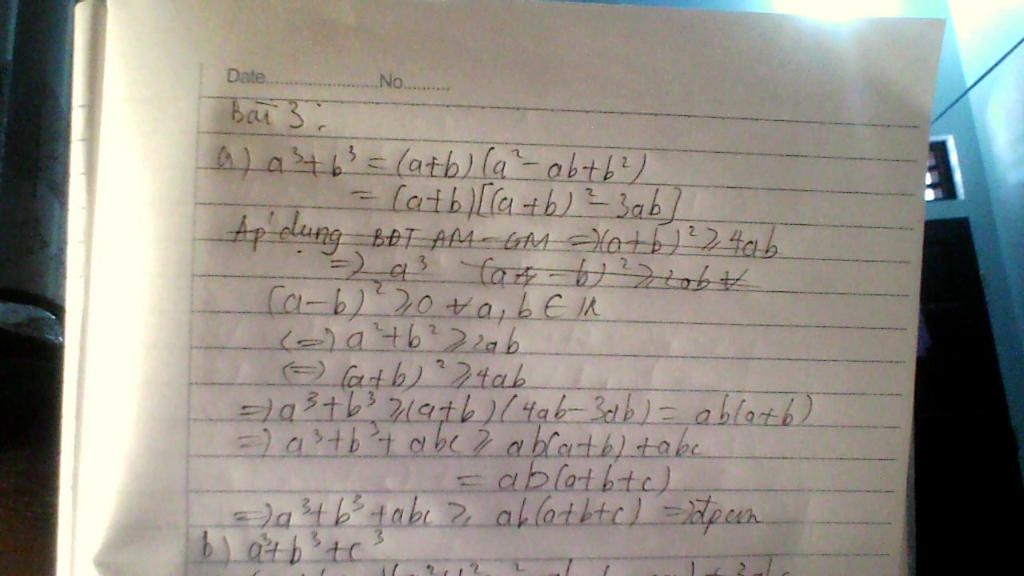 Date...................No..........
Bài 3:
a) a³+b³ = (a+b)(a²-ab+b²)
= (a+b)[(a+b)²-3ab]
Áp dụng BĐT AM-GM =>(a+b)²≥4ab
=> a³ (a+-b)²≥2ab ∀
(a-b)²≥0 ∀a,b∈R
<=> a²+b²≥2ab
<=> (a+b)²≥4ab
=> a³+b³≥(a+b)(4ab-3ab) = ab(a+b)
=> a³+b³+abc ≥ ab(a+b)+abc
= ab(a+b+c)
=> a³+b³+abc ≥ ab(a+b+c) => đpcm
b) a³+b³+c³